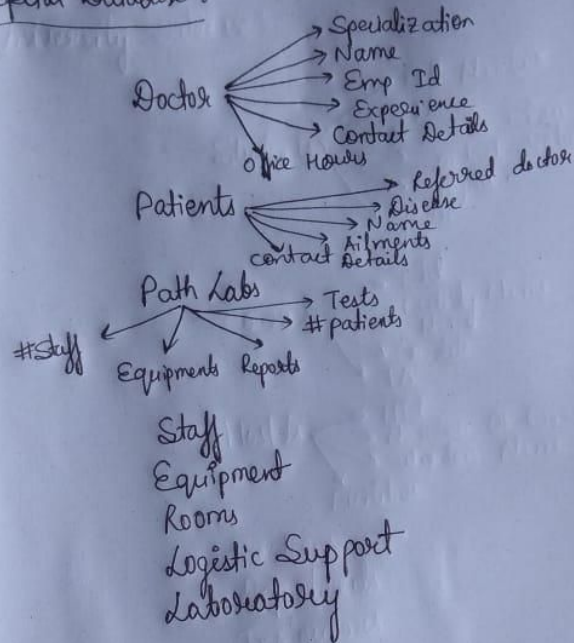 Specialization
Name
Doctor
Emp Id
Experience
Contact Details
Office Hours
Referred doctor
Patients
Disease
Name
Ailments
Contact Details
Path Labs
Tests
#patients
#Staff
Equipments Reports
Staff
Equipment
Rooms
Logistic Support
Laboratory